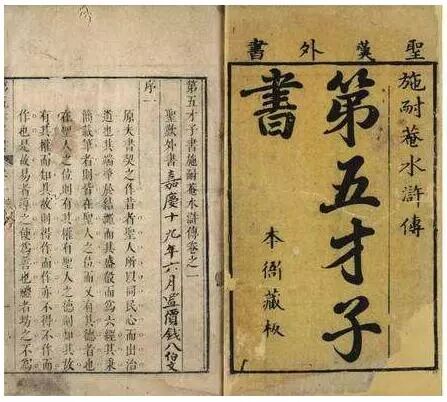 聖歎外書
施耐菴水滸傳
第五才子
書
本衙藏板
第五才子書施耐菴水滸傳卷之一
聖歎外書
嘉慶十九年六月置價錢八伯文
序一
原夫書契之作昔者聖人所以同民心而出治
道也其端肇於結繩而其盛殽而爲六經其秉
簡載筆者則皆在聖人之位而又有其德者也
在聖人之位則有其權有聖人之德則知其故
有其權而知其故則得作而作亦不得不作而
作也是故易者導之使爲善也禮者坊之不爲